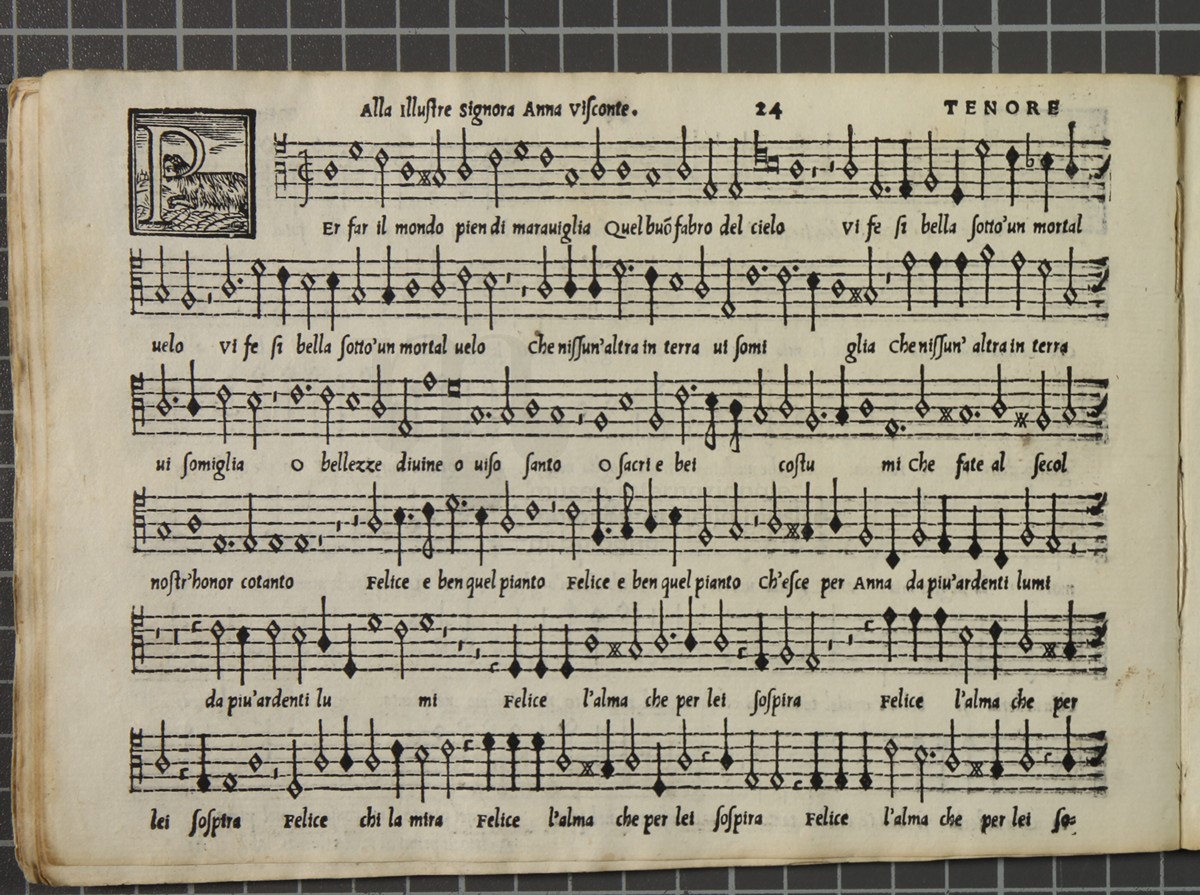 Alla Illuſtre Signora Anna Viſconte. 24 TENORE
PEr far il mondo pien di marauiglia Quel buõ fabro del cielo Vi fe ſi bella ſotto'un mortal
uelo Vi fe ſi bella ſotto'un mortal uelo Che niſſun'altra in terra ui ſomi glia Che niſſun' altra in terra
ui ſomiglia O bellezze diuine o uiſo ſanto O ſacri e bei coſtu mi Che fate al ſecol
noſtr'honor cotanto Felice e ben quel pianto Felice e ben quel pianto Ch'eſce per Anna da piu'ardenti lumi
da piu'ardenti lu mi Felice l'alma che per lei ſoſpira Felice l'alma che per
lei ſoſpira Felice chi la mira Felice l'alma che per lei ſoſpira Felice l'alma che per lei ſo=